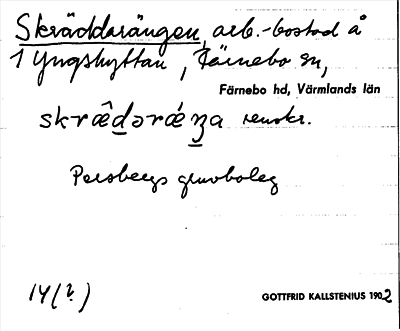 Skräddarängen, arb.-bostad å
1 Yngshyttan, Färnebo sn,
Färnebo hd, Värmlands län
skræ̂d̲ərǽŋa renskr.
Persbergs gruvbolag
14(?)
GOTTFRID KALLSTENIUS 1902